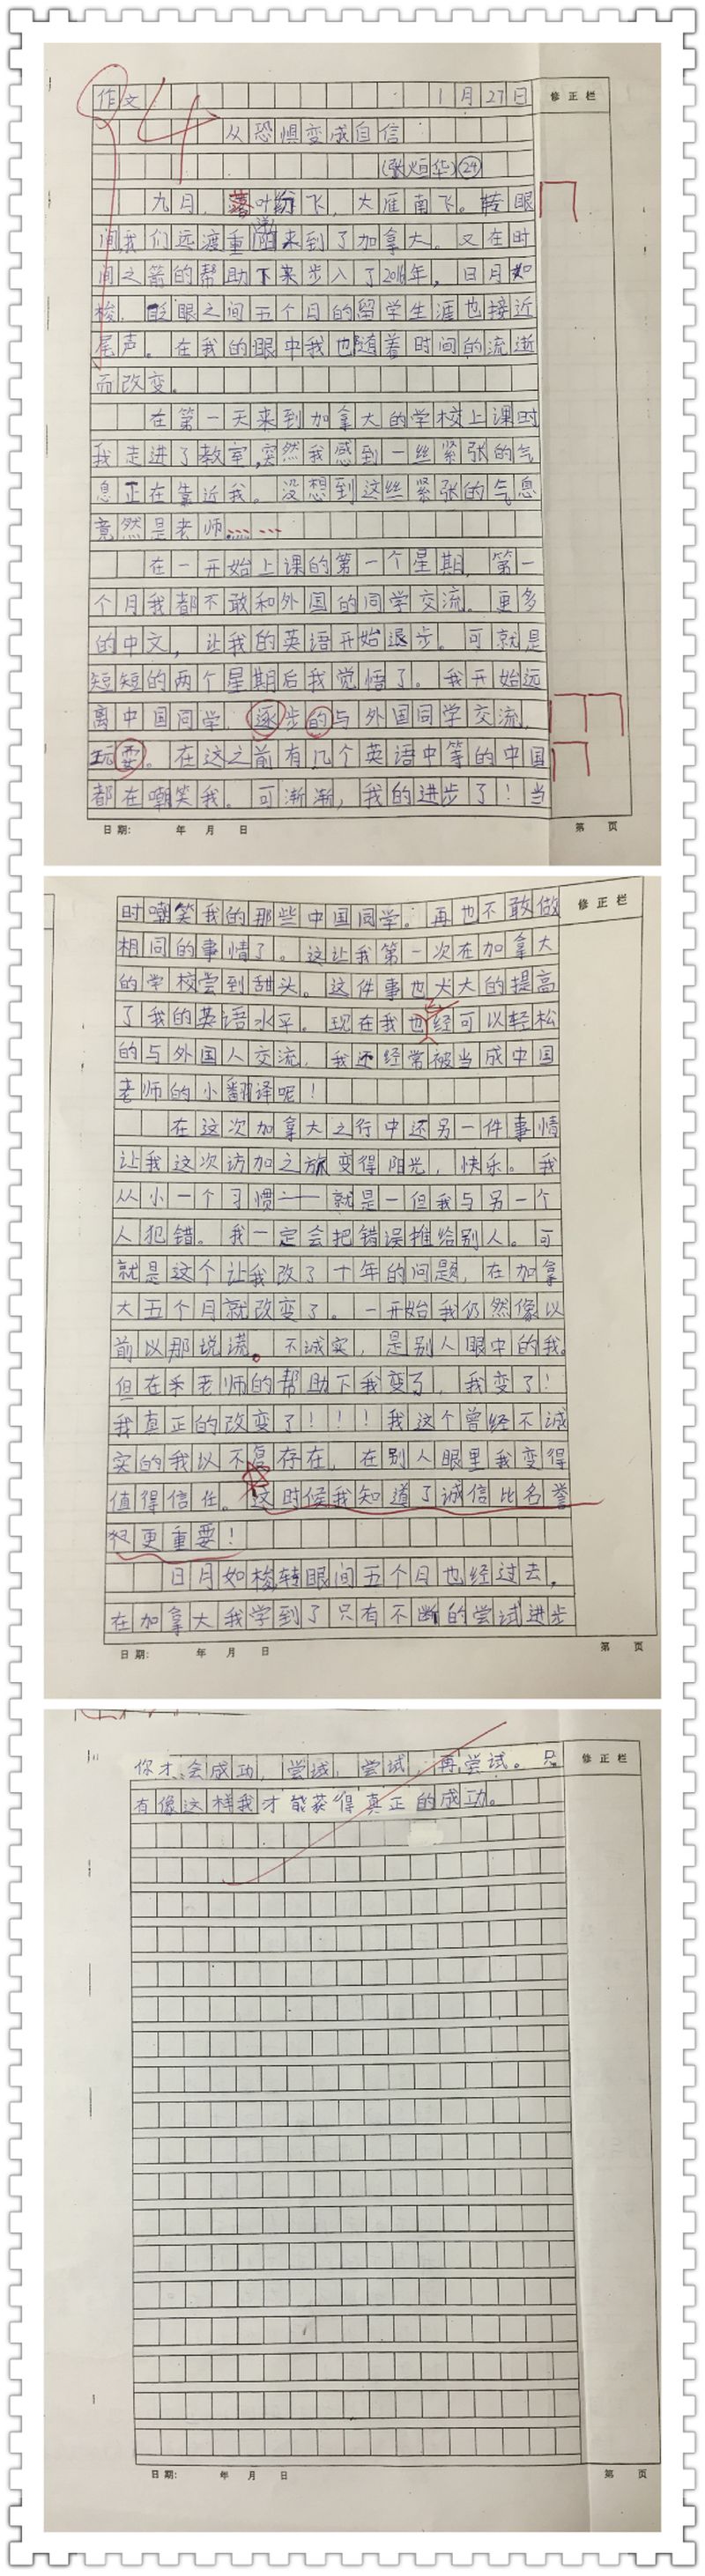 作文 1月27日 修正栏
94
从恐惧变成自信
(张烜华)(24)
九月，落叶纷飞，大雁南飞。转眼
间我们远渡重洋来到了加拿大。又在时
间之箭的帮助下来步入了2016年，日月如
梭，眨眼之间五个月的留学生涯也接近
尾声。在我的眼中我也随着时间的流逝
而改变。
在第一天来到加拿大的学校上课时
我走进了教室,突然我感到一丝紧张的气
息正在靠近我。没想到这丝紧张的气息
竟然是老师……
在一开始上课的第一个星期，第一
个月我都不敢和外国的同学交流。更多
的中文，让我的英语开始退步。可就是
短短的两个星期后我觉悟了。我开始远
离中国同学，逐步的与外国同学交流，
玩耍。在这之前有几个英语中等的中国
都在嘲笑我。可渐渐，我的进步了！当
日期： 年 月 日 第 页
时嘲笑我的那些中国同学。再也不敢做 修正栏
相同的事情了。这让我第一次在加拿大
的学校尝到甜头。这件事也大大的提高
了我的英语水平。现在我也经可以轻松
的与外国人交流，我还经常被当成中国
老师的小翻译呢！
在这次加拿大之行中还另一件事情
让我这次访加之旅变得阳光，快乐。我
从小一个习惯——就是一但我与另一个
人犯错。我一定会把错误推给别人。可
就是这个让我改了十年的问题，在加拿
大五个月就改变了。一开始我仍然像以
前以那说谎。不诚实，是别人眼中的我。
但在老师的帮助下我变了，我变了！
我真正的改变了！！！我这个曾经不诚
实的我以不复存在，在别人眼里我变得
值得信任。这时候我知道了诚信比名誉
更重要！
日月如梭,转眼间五个月也经过去，
在加拿大我学到了只有不断的尝试进步
日期： 年 月 日 第 页
你才会成功，尝试，尝试，再尝试。只 修正栏
有像这样我才能获得真正的成功。
日期： 年 月 日 第 页